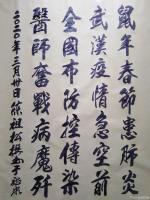 鼠年春節患肺炎
武漢疫情急空前
全國布防控傳染
醫師奮戰病魔歼
二〇二〇年三月廿日熊祖松撰